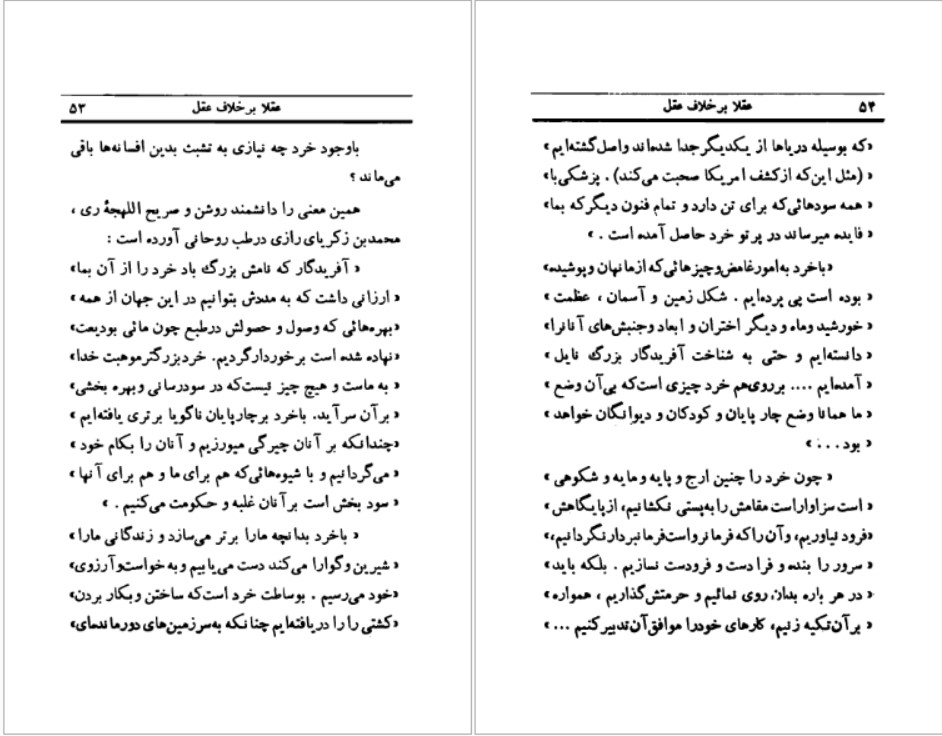 عقلا برخلاف عقل ۵۳
باوجود خرد چه نیازی به تشبث بدین افسانه‌ها باقی
می‌ماند ؟
همین معنی را دانشمند روشن و صریح اللهجهٔ ری ،
محمدبن زکریای رازی درطب روحانی آورده است :
« آفریدگار که نامش بزرگ باد خرد را از آن بما»
« ارزانی داشت که به مددش بتوانیم در این جهان از همه »
«بهره‌هائی که وصول و حصولش درطبع چون مائی بودیعت»
«نهاده شده است برخوردارگردیم. خردبزرگترموهبت خدا»
« به ماست و هیچ چیز نیست‌که در سودرسانی وبهره بخشی»
« برآن سرآید. باخرد برچارپایان ناگویا برتری یافته‌ایم »
«چندانکه بر آنان چیرگی میورزیم و آنان را بکام خود »
« می‌گردانیم و با شیوه‌هائی‌که هم برای ما و هم برای آنها »
« سود بخش است برآنان غلبه و حکومت می‌کنیم . »
« باخرد بدانچه مارا برتر می‌سازد و زندگانی مارا»
« شیرین وگوارا می‌کند دست می‌یابیم و به خواست‌وآرزوی»
«خود می‌رسیم . بوساطت خرد است‌که ساختن وبکار بردن»
«کشتی را را دریافته‌ایم چنانکه به‌سرزمین‌های دورمانده‌ای»
۵۴ عقلا برخلاف عقل
«که بوسیله دریاها از یکدیگرجدا شده‌اند واصل‌گشته‌ایم»
« (مثل این‌که ازکشف امریکا صحبت می‌کند) . پزشکی‌با»
« همه سودهائی‌که برای تن دارد و تمام فنون دیگرکه بما»
« فایده میرساند در پرتو خرد حاصل آمده است . »
«باخرد به‌امورغامض‌وچیزهائی‌که ازمانهان وپوشیده»
« بوده است پی برده‌ایم . شکل زمین و آسمان ، عظمت »
« خورشید وماه و دیگر اختران و ابعاد وجنبش‌های آنانرا»
« دانسته‌ایم و حتی به شناخت آفریدگار بزرگ نایل »
« آمده‌ایم .... برروی‌هم خرد چیزی است‌که بی‌آن وضع »
« ما همانا وضع چار پایان و کودکان و دیوانگان خواهد »
« بود . . . »
« چون خرد را چنین ارج و پایه و مایه و شکوهی »
« است سزاواراست مقامش رابه‌پستی نکشانیم، ازپایگاهش »
«فرود نیاوریم، وآن‌راکه فرمانرواست‌فرمانبردارنگردانیم،»
« سرور را بنده و فرا دست و فرودست نسازیم . بلکه باید»
« در هر باره بدان روی نمائیم و حرمتش‌گذاریم ، همواره »
« برآن‌تکیه زنیم، کارهای خودرا موافق‌آن‌تدبیرکنیم ... »